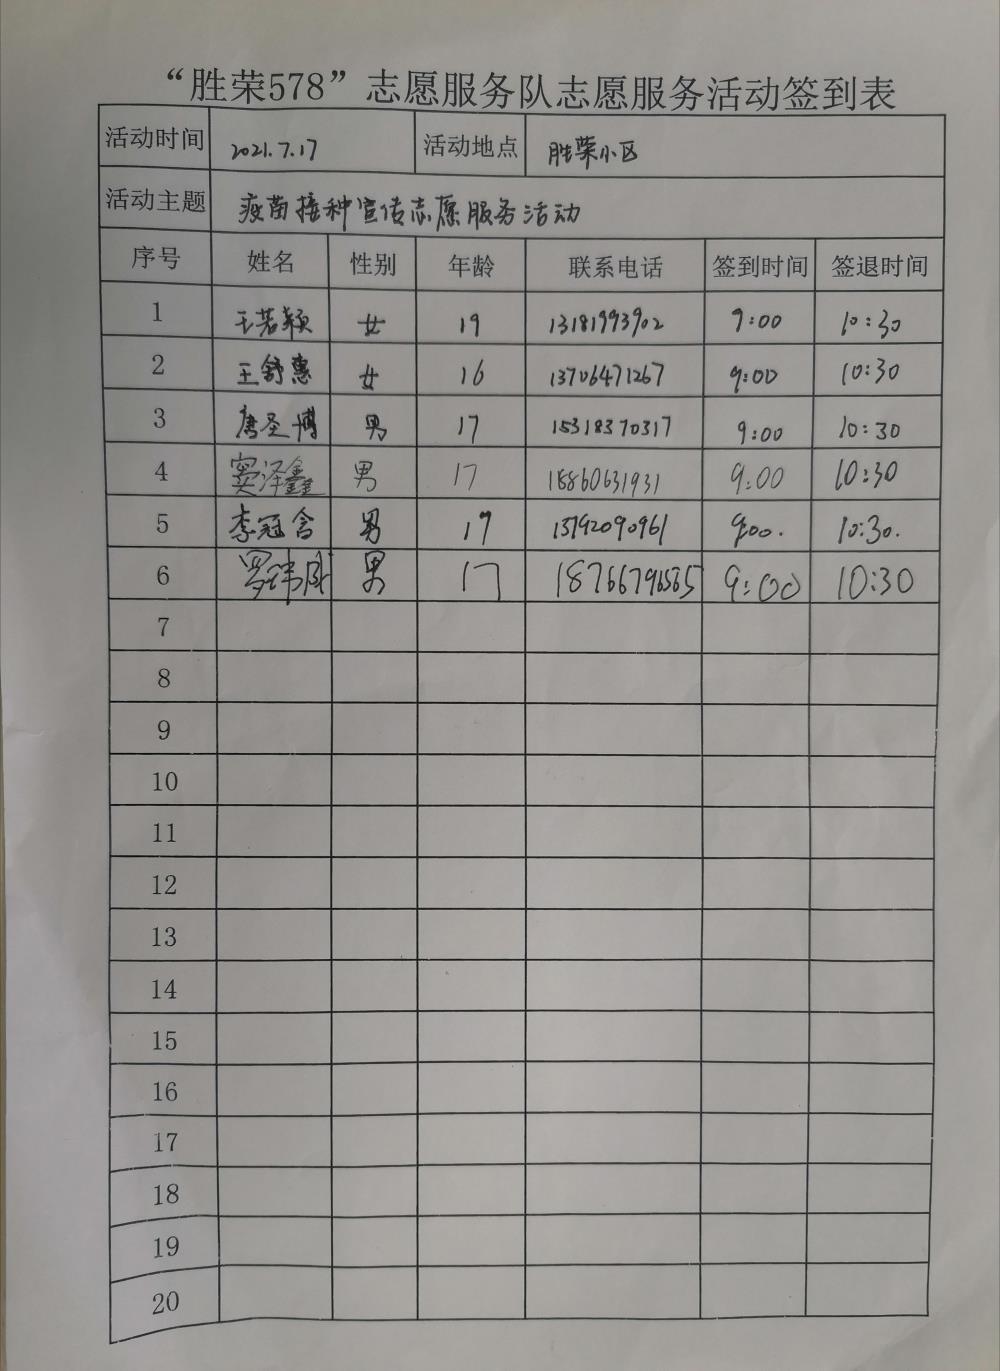 “胜荣578”志愿服务队志愿服务活动签到表
活动时间 2021.7.17 活动地点 胜荣小区
活动主题 疫苗接种宣传志愿服务活动
序号 姓名 性别 年龄 联系电话 签到时间 签退时间
1 王若颖 女 19 13181993902 9:00 10:30
2 王舒惠 女 16 13706471267 9:00 10:30
3 唐圣博 男 17 15318370317 9:00 10:30
4 窦泽鑫 男 17 18860631931 9:00 10:30
5 李冠含 男 17 13792090961 9:00. 10:30.
6 男 17 18766796565 9:00 10:30
7
8
9
10
11
12
13
14
15
16
17
18
19
20